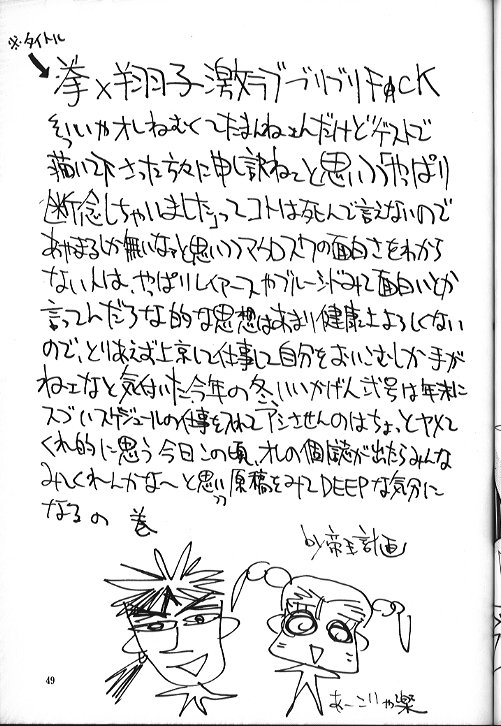 ※タイトル
拳×翔子 激ラブブリブリFACK
そういやオレねむくてたまんねェんだけどゲストで
描いて下さった方々に申し訳ねェと思いつつ「やっぱり
断念しちゃいました」ってコトは死んで言えないので
あやまるしか無いなァと思いつつマクロスワの面白さをわから
ない人は、やっぱりレイアースやブルーシードみて面白いとか
言ってんだろな的な思想はあまり健康上よろしくない
ので、とりあえず上京して仕事して自分をおいこむしか手が
ねェなと気付いた今年の冬、いいかげん弐号は年末に
スゴいスケジュールの仕事を入れてアシさせんのはちょっとヤメて
くれ的に思う今日この頃、オレの個人誌が出たらみんな
みてくれんかな〜と思いつつ原稿をみてDEEPな気分に
なるの 巻
by帝王計画
あーこりゃ楽
49